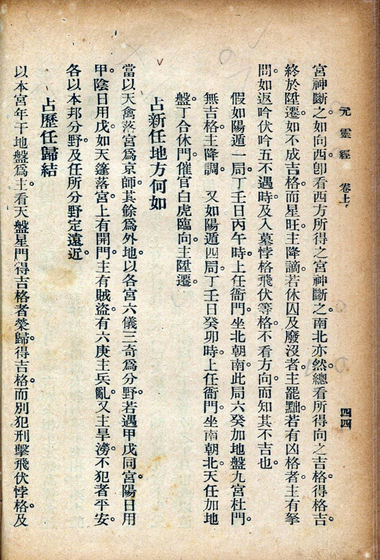 元靈經 卷上
四四
宮神斷之如向西卽看西方所得之宮神斷之南北亦然總看所得向之吉格得格吉
終於陞遷如不成吉格而星旺主降謫若休囚及廢沒者主罷黜若有凶格者主有拏
問如返吟伏吟五不遇時及入墓悖格飛伏等格不看方向而知其不吉也
假如陽遁一局丁壬日丙午時上任衙門坐北朝南此局六癸加地盤九宮杜門
無吉格主降調 又如陽遁四局丁壬日癸卯時上任衙門坐南朝北天任加地
盤丁合休門催官白虎臨向主陞遷
占新任地方何如
當以天禽落宮爲京師其餘宮爲外地以各宮六儀三奇爲分野若遇甲戊同宮陽日用
甲陰日用戊如天蓬落宮上有開門主有賊盜有六庚主兵亂又主旱澇不犯者平安
各以本邦分野及任所分野定遠近
占歷任歸結
以本宮年干地盤爲主看天盤星門得吉格者榮歸得吉格而別犯刑擊飛伏悖格及